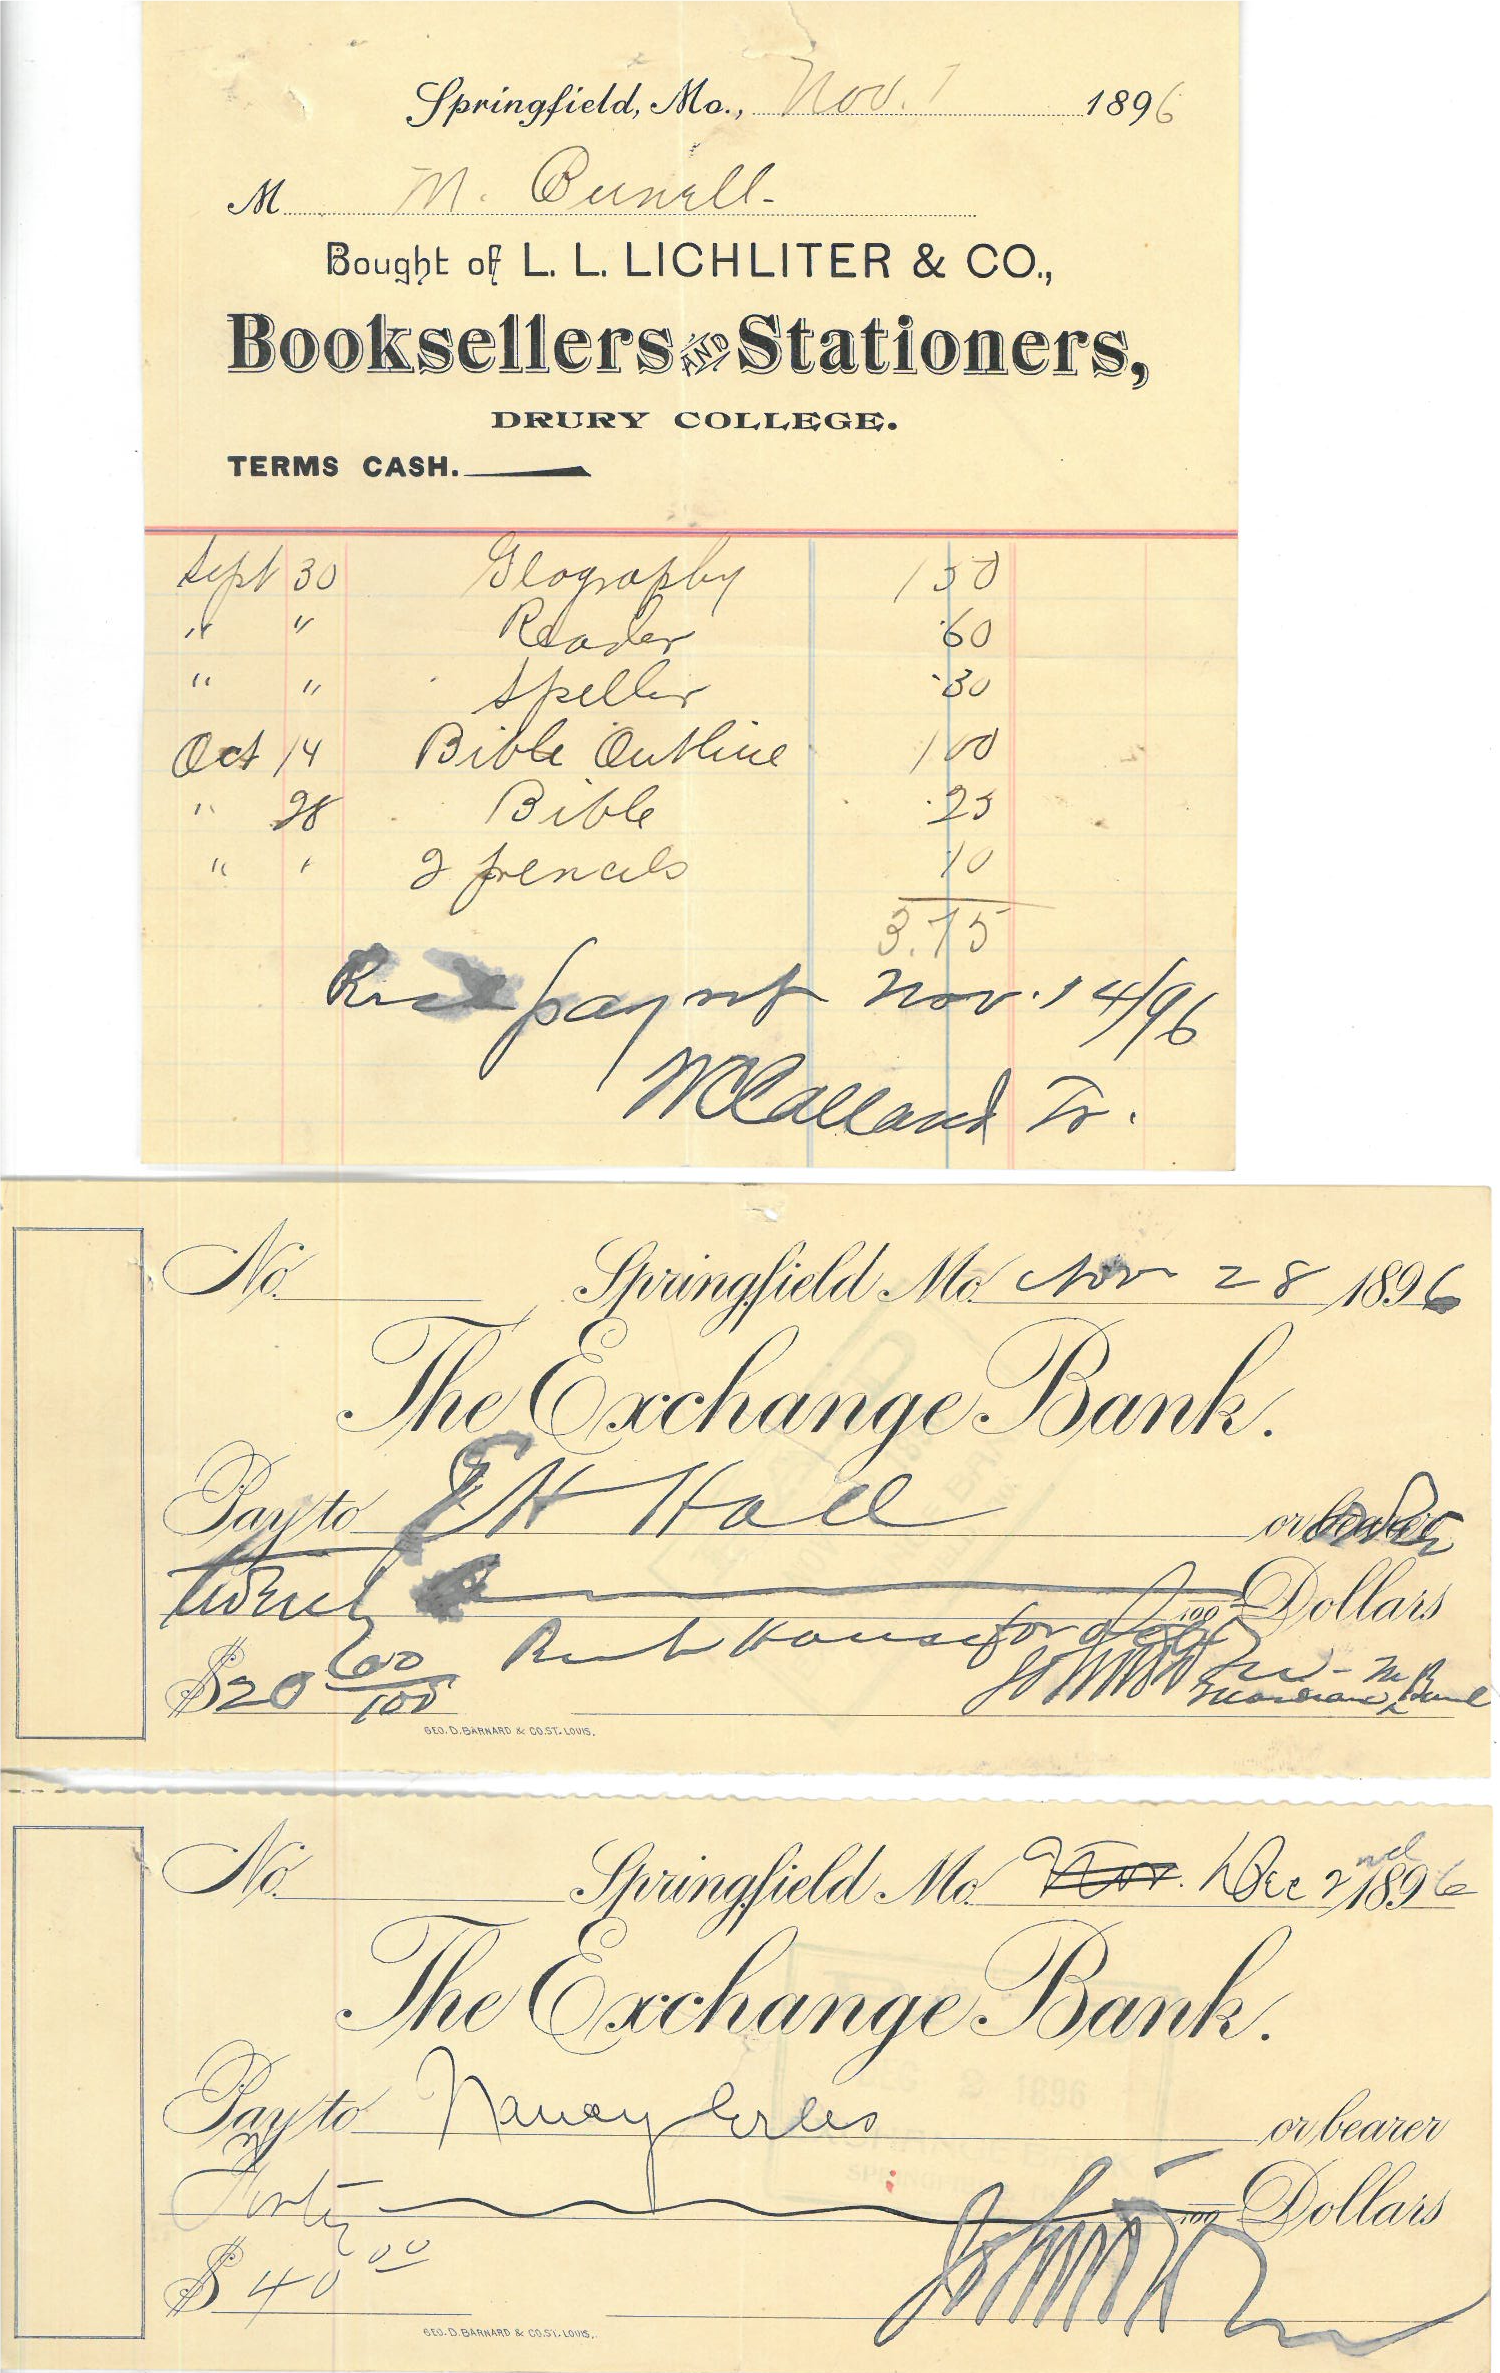 Springfield, Mo., Nov. 1 1896
M M. Bunell-
Bought of L. L. LICHLITER & CO.,
Booksellers AND Stationers,
DRURY COLLEGE.
TERMS CASH.
Sept 30 Geography 1 50
" " Reader .60
" " Speller .30
Oct 14 Bible Outline 1 00
" 28 Bible .25
" " 2 pencils 10
3.75
Recd paymt Nov. 14/96
WCCalland Tr.
No. Springfield Mo. Nov 28 1896
The Exchange Bank.
Pay to E H Hall or order
twenty 100 Dollars
$20 00/100 Rent House for
GEO. D. BARNARD & CO. ST. LOUIS.
No. Springfield Mo. Nov. Dec 2nd 1896
The Exchange Bank.
Pay to Nancy or bearer
Forty 100 Dollars
$40 00
GEO. D. BARNARD & CO. ST. LOUIS.